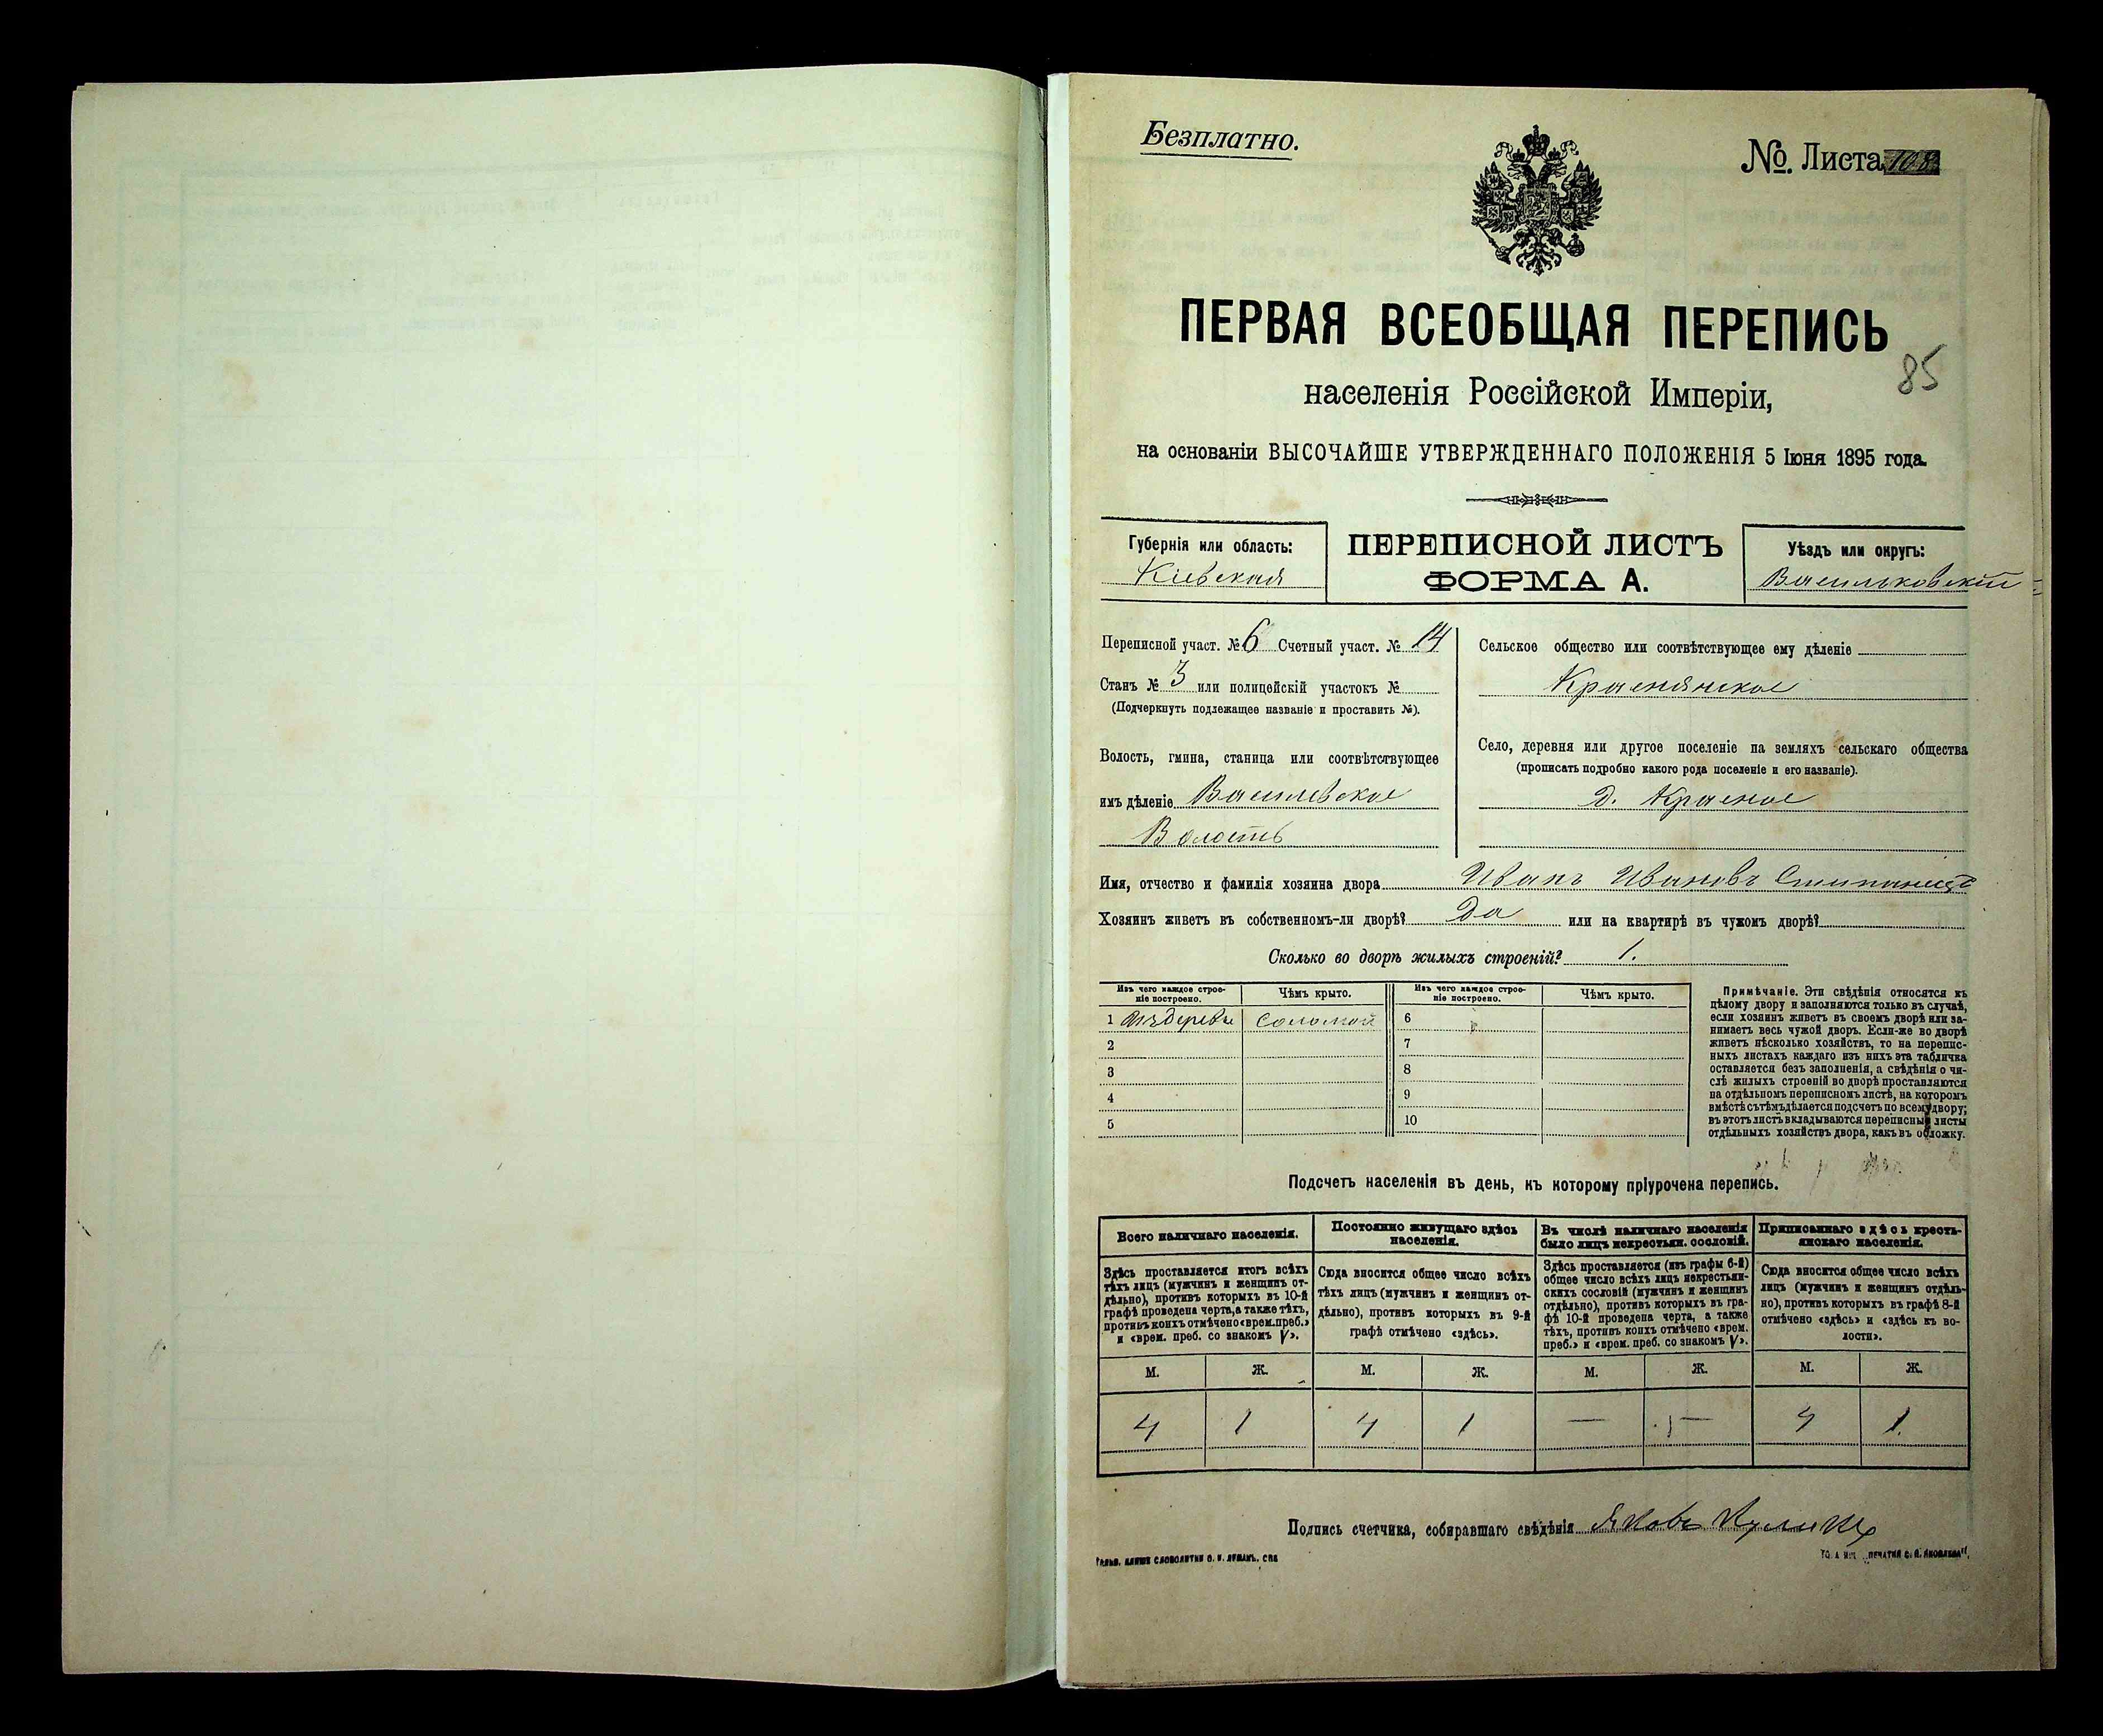 Безплатно.
№. Листа 108
ПЕРВАЯ ВСЕОБЩАЯ ПЕРЕПИСЬ
85
населенія Россійской Имперіи,
на основаніи ВЫСОЧАЙШЕ УТВЕРЖДЕННАГО ПОЛОЖЕНІЯ 5 Іюня 1895 года.
Губернія или область:
Кіевская
ПЕРЕПИСНОЙ ЛИСТЪ
ФОРМА А.
Уѣздъ или округъ:
Васильковскій
Переписной участ. № 6 Счетный участ. № 14
Станъ № 3 или полицейскій участокъ №
(Подчеркнуть подлежащее названіе и проставить №).
Волость, гмина, станица или соотвѣтствующее
имъ дѣленіе Василевское
Волость
Сельское общество или соотвѣтствующее ему дѣленіе
Краснянское
Село, деревня или другое поселеніе на земляхъ сельскаго общества
(прописать подробно какого рода поселеніе и его названіе).
д. Красное
Имя, отчество и фамилія хозяина двора Иванъ Ивановъ
Хозяинъ живетъ въ собственномъ-ли дворѣ? Да или на квартирѣ въ чужомъ дворѣ?
Сколько во дворѣ жилыхъ строеній? 1.
Изъ чего каждое строе-
ніе построено.
Чѣмъ крыто.
Изъ чего каждое строе-
ніе построено.
Чѣмъ крыто.
1 Изъ дерева соломой 6
2 7
3 8
4 9
5 10
Примѣчаніе. Эти свѣдѣнія относятся къ
цѣлому двору и заполняются только въ случаѣ,
если хозяинъ живетъ въ своемъ дворѣ или за-
нимаетъ весь чужой дворъ. Если-же во дворѣ
живетъ нѣсколько хозяйствъ, то на перепис-
ныхъ листахъ каждаго изъ нихъ эта табличка
оставляется безъ заполненія, а свѣдѣнія о чи-
слѣ жилыхъ строеній во дворѣ проставляются
на отдѣльномъ переписномъ листѣ, на которомъ
вмѣстѣ съ тѣмъ дѣлается подсчетъ по всему двору;
въ этотъ листъ вкладываются переписные листы
отдѣльныхъ хозяйствъ двора, какъ въ обложку.
Подсчетъ населенія въ день, къ которому пріурочена перепись.
Всего наличнаго населенія.
Здѣсь проставляется итогъ всѣхъ
тѣхъ лицъ (мужчинъ и женщинъ от-
дѣльно), противъ которыхъ въ 10-й
графѣ проведена черта, а также тѣхъ,
противъ коихъ отмѣчено «врем. преб.»
и «врем. преб. со знакомъ V».
Постоянно живущаго здѣсь
населенія.
Сюда вносится общее число всѣхъ
тѣхъ лицъ (мужчинъ и женщинъ от-
дѣльно), противъ которыхъ въ 9-й
графѣ отмѣчено «здѣсь».
Въ числѣ наличнаго населенія
было лицъ некрестьян. сословій.
Здѣсь проставляется (изъ графы 6-й)
общее число всѣхъ лицъ некрестьян-
скихъ сословій (мужчинъ и женщинъ
отдѣльно), противъ которыхъ въ гра-
фѣ 10-й проведена черта, а также
тѣхъ, противъ коихъ отмѣчено «врем.
преб.» и «врем. преб. со знакомъ V».
Приписаннаго здѣсь кресть-
янскаго населенія.
Сюда вносится общее число всѣхъ
лицъ (мужчинъ и женщинъ отдѣль-
но), противъ которыхъ въ графѣ 8-й
отмѣчено «здѣсь» и «здѣсь къ во-
лости».
М. Ж. М. Ж. М. Ж. М. Ж.
4 1 4 1 — — 4 1.
Подпись счетчика, собиравшаго свѣдѣнія Яковъ Куликъ